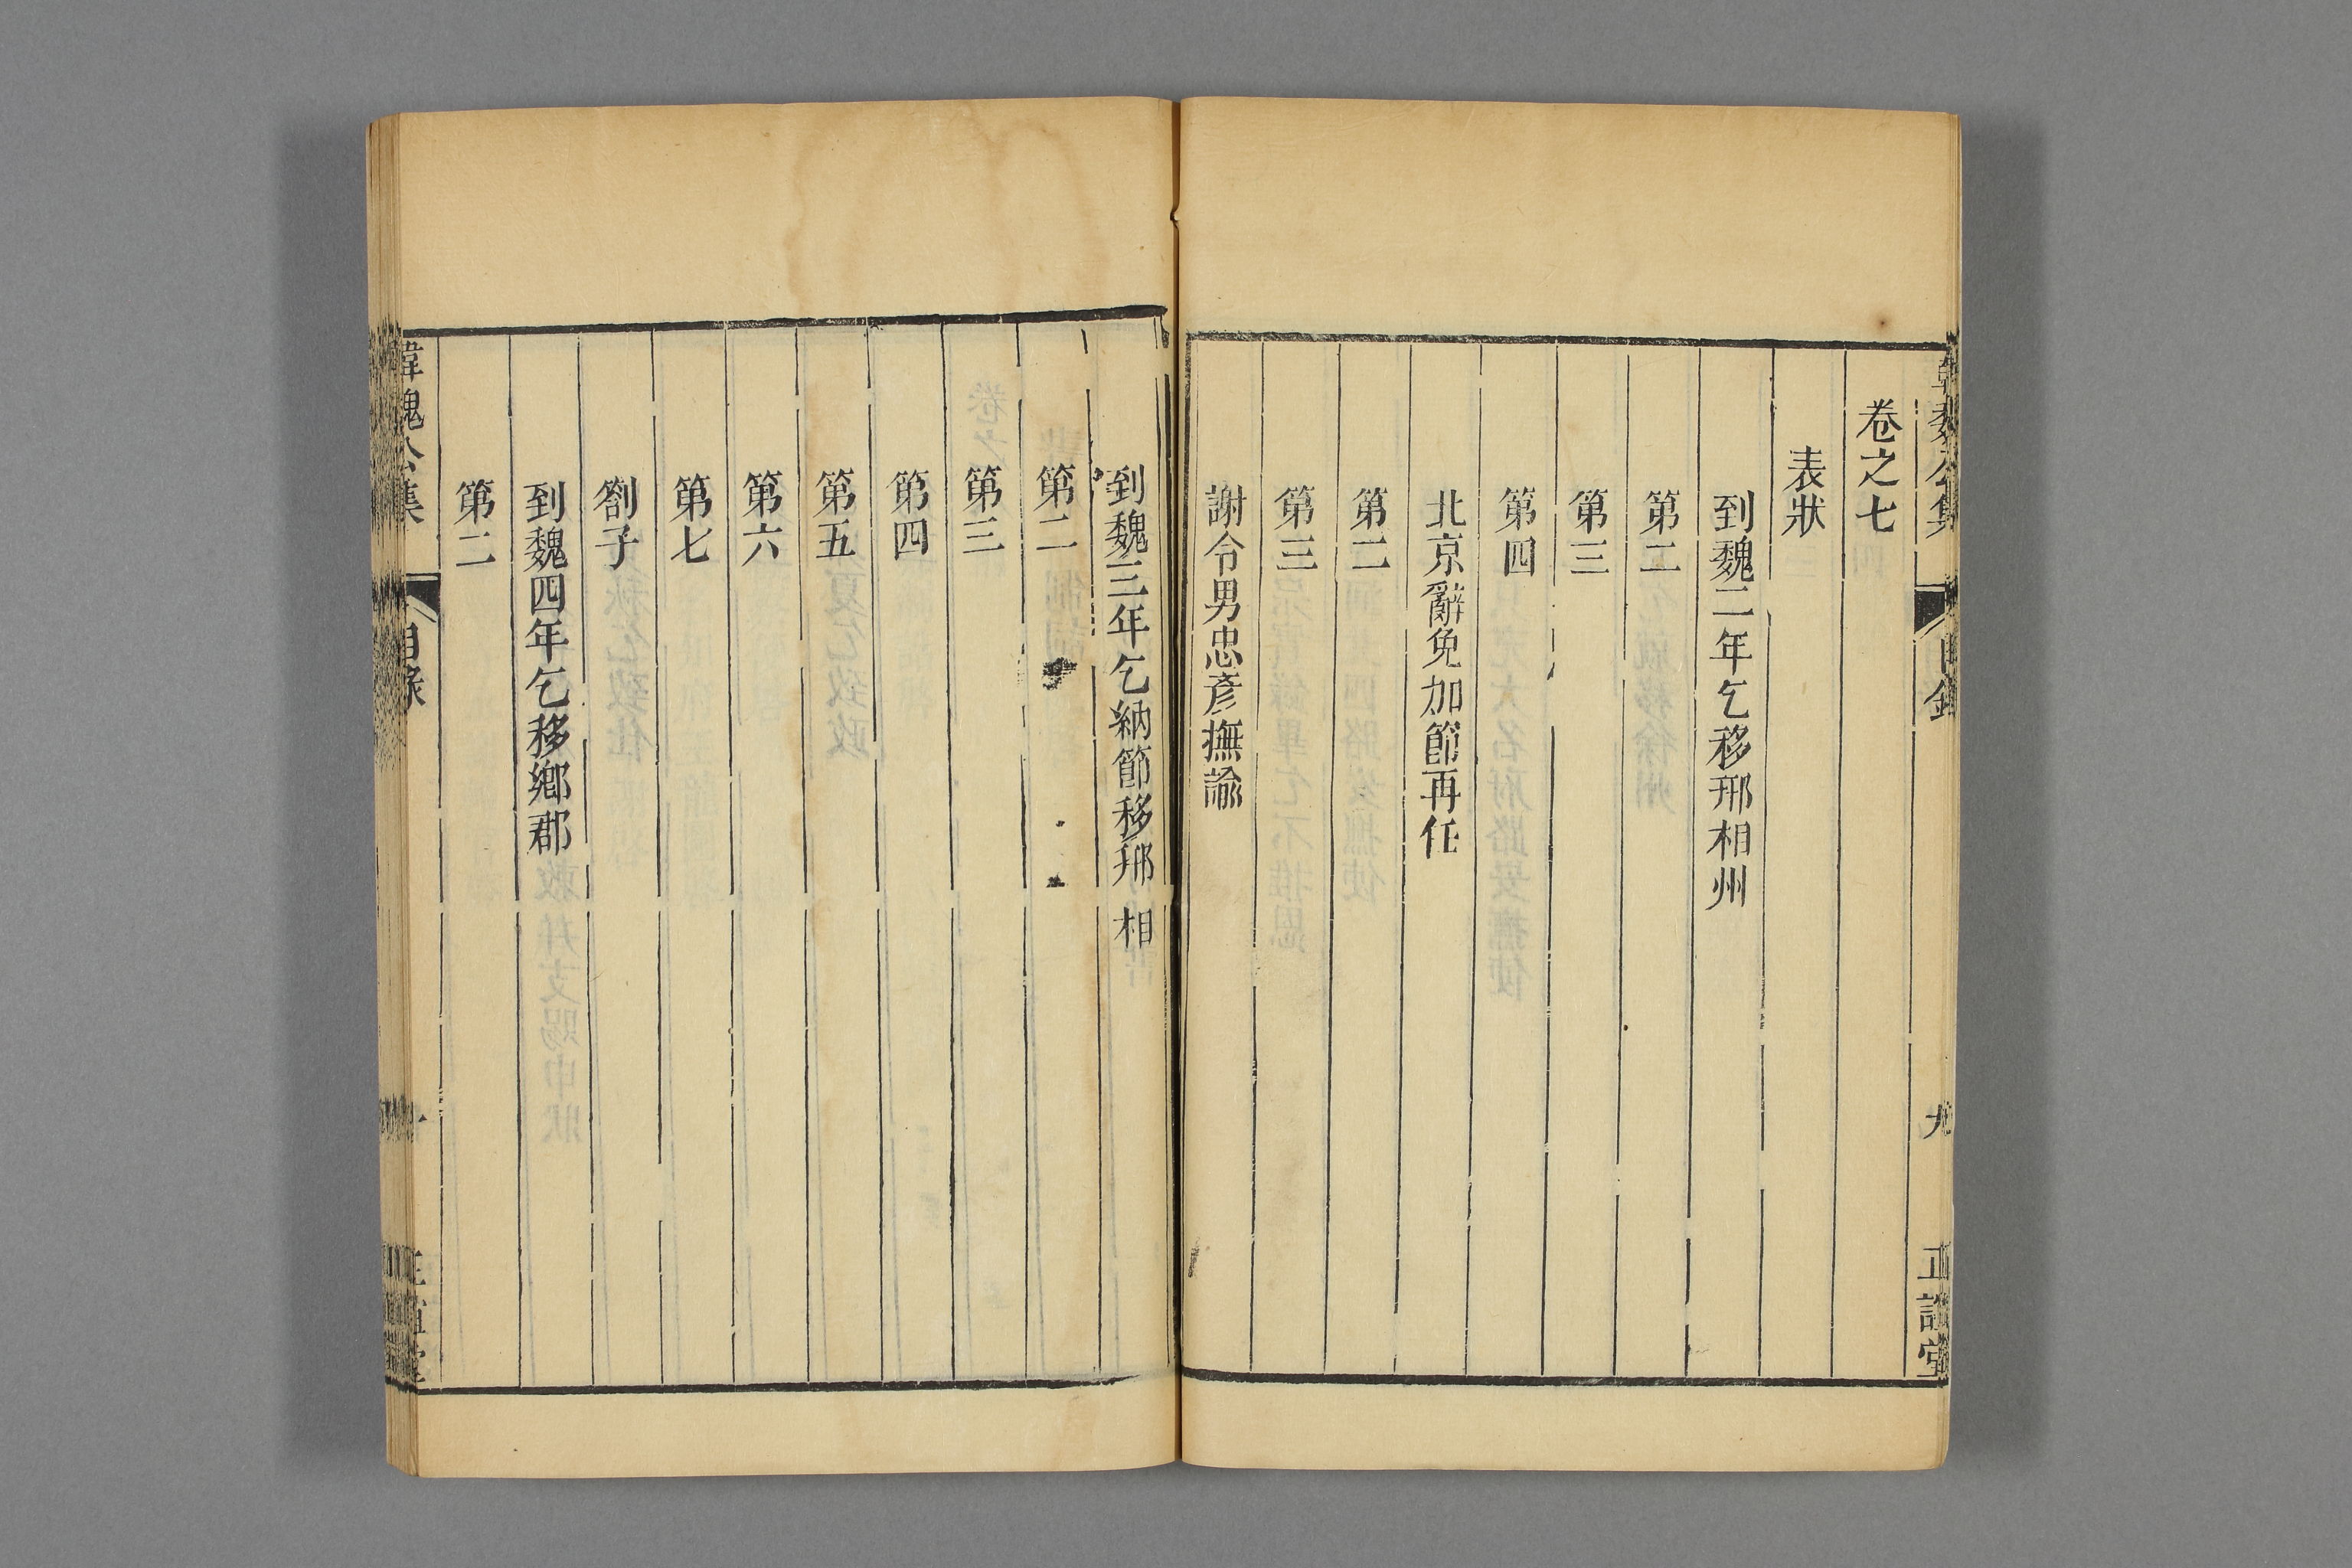 卷之七
表狀
到魏二年乞移邢相州
第二
第三
第四
北京辭免加節再任
第二
第三
謝令男忠彥撫諭
到魏三年乞納節移邢相
第二
第三
第四
第五
第六
第七
劄子
到魏四年乞移鄉郡
第二
韓魏公集 目錄 九 正誼堂